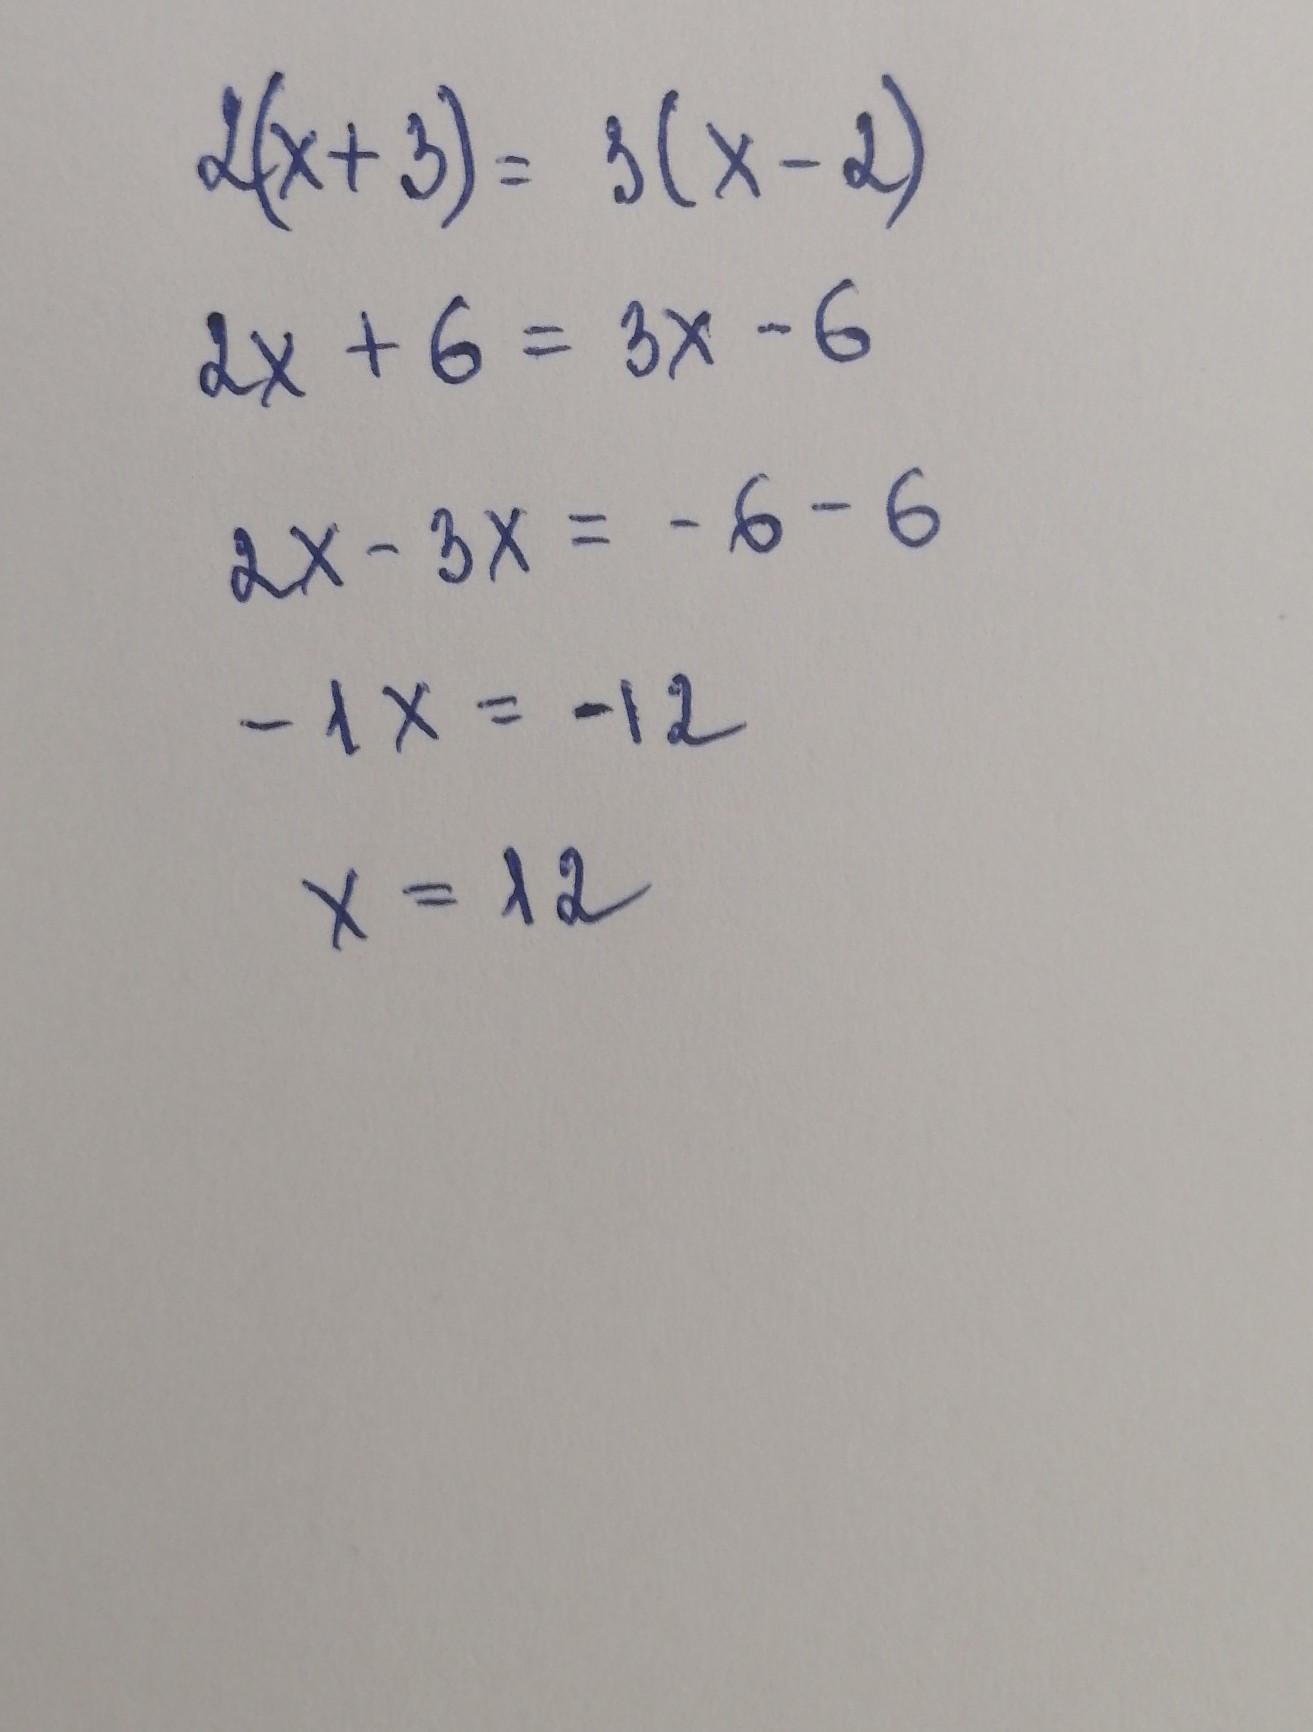 2(x+3) = 3(x-2)
2x + 6 = 3x - 6
2x - 3x = -6 - 6
-1x = -12
x = 12